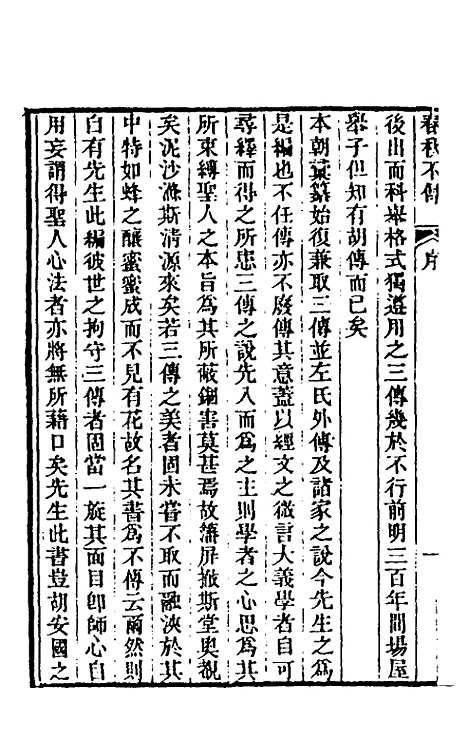 春秋不傳 序 一
後出而科舉格式獨遵用之三傳幾於不行前明三百年間場屋
舉子但知有胡傳而已矣
本朝纂纂始復兼取三傳並左氏外傳及諸家之說今先生之為
是編也不任傳亦不廢傳其意蓋以經文之微言大義學者自可
尋繹而得之所患三傳之說先入而為之主則學者之心思為其
所束縛聖人之本旨為其所蔽錮害莫甚焉故籓屏撤斯堂奧覩
矣泥沙滌斯清源來矣若三傳之美者固未嘗不取而融浹於其
中特如蜂之釀蜜蜜成而不見有花故名其書為不傳云爾然則
自有先生此編彼世之拘守三傳者固當一旋其面目卽師心自
用妄謂得聖人心法者亦將無所藉口矣先生此書豈胡安國之